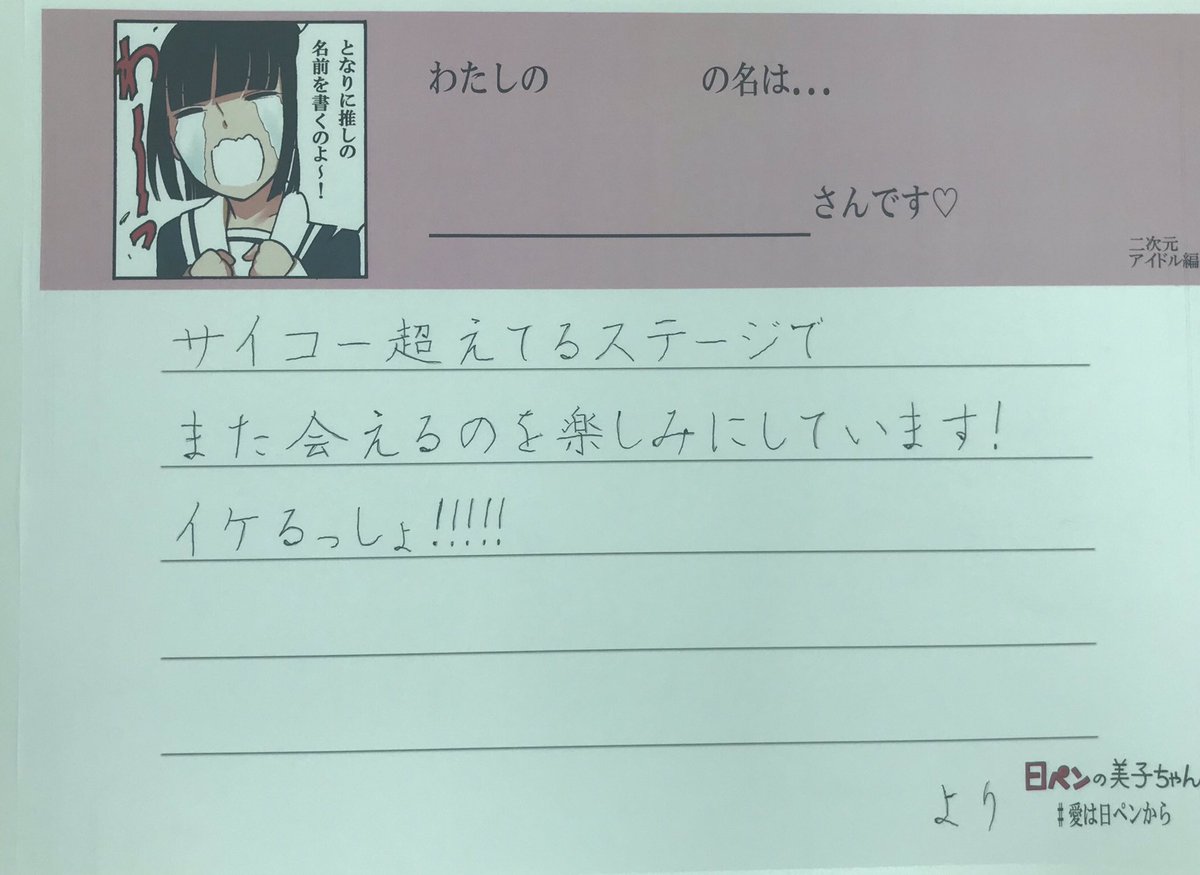 となりに推しの
名前を書くのよ～！
わーーっ
わたしの　　　の名は...
さんです♡
二次元
アイドル編
サイコー超えてるステージで
また会えるのを楽しみにしています！
イケるっしょ!!!!!
より
日ペンの美子ちゃん
#愛は日ペンから